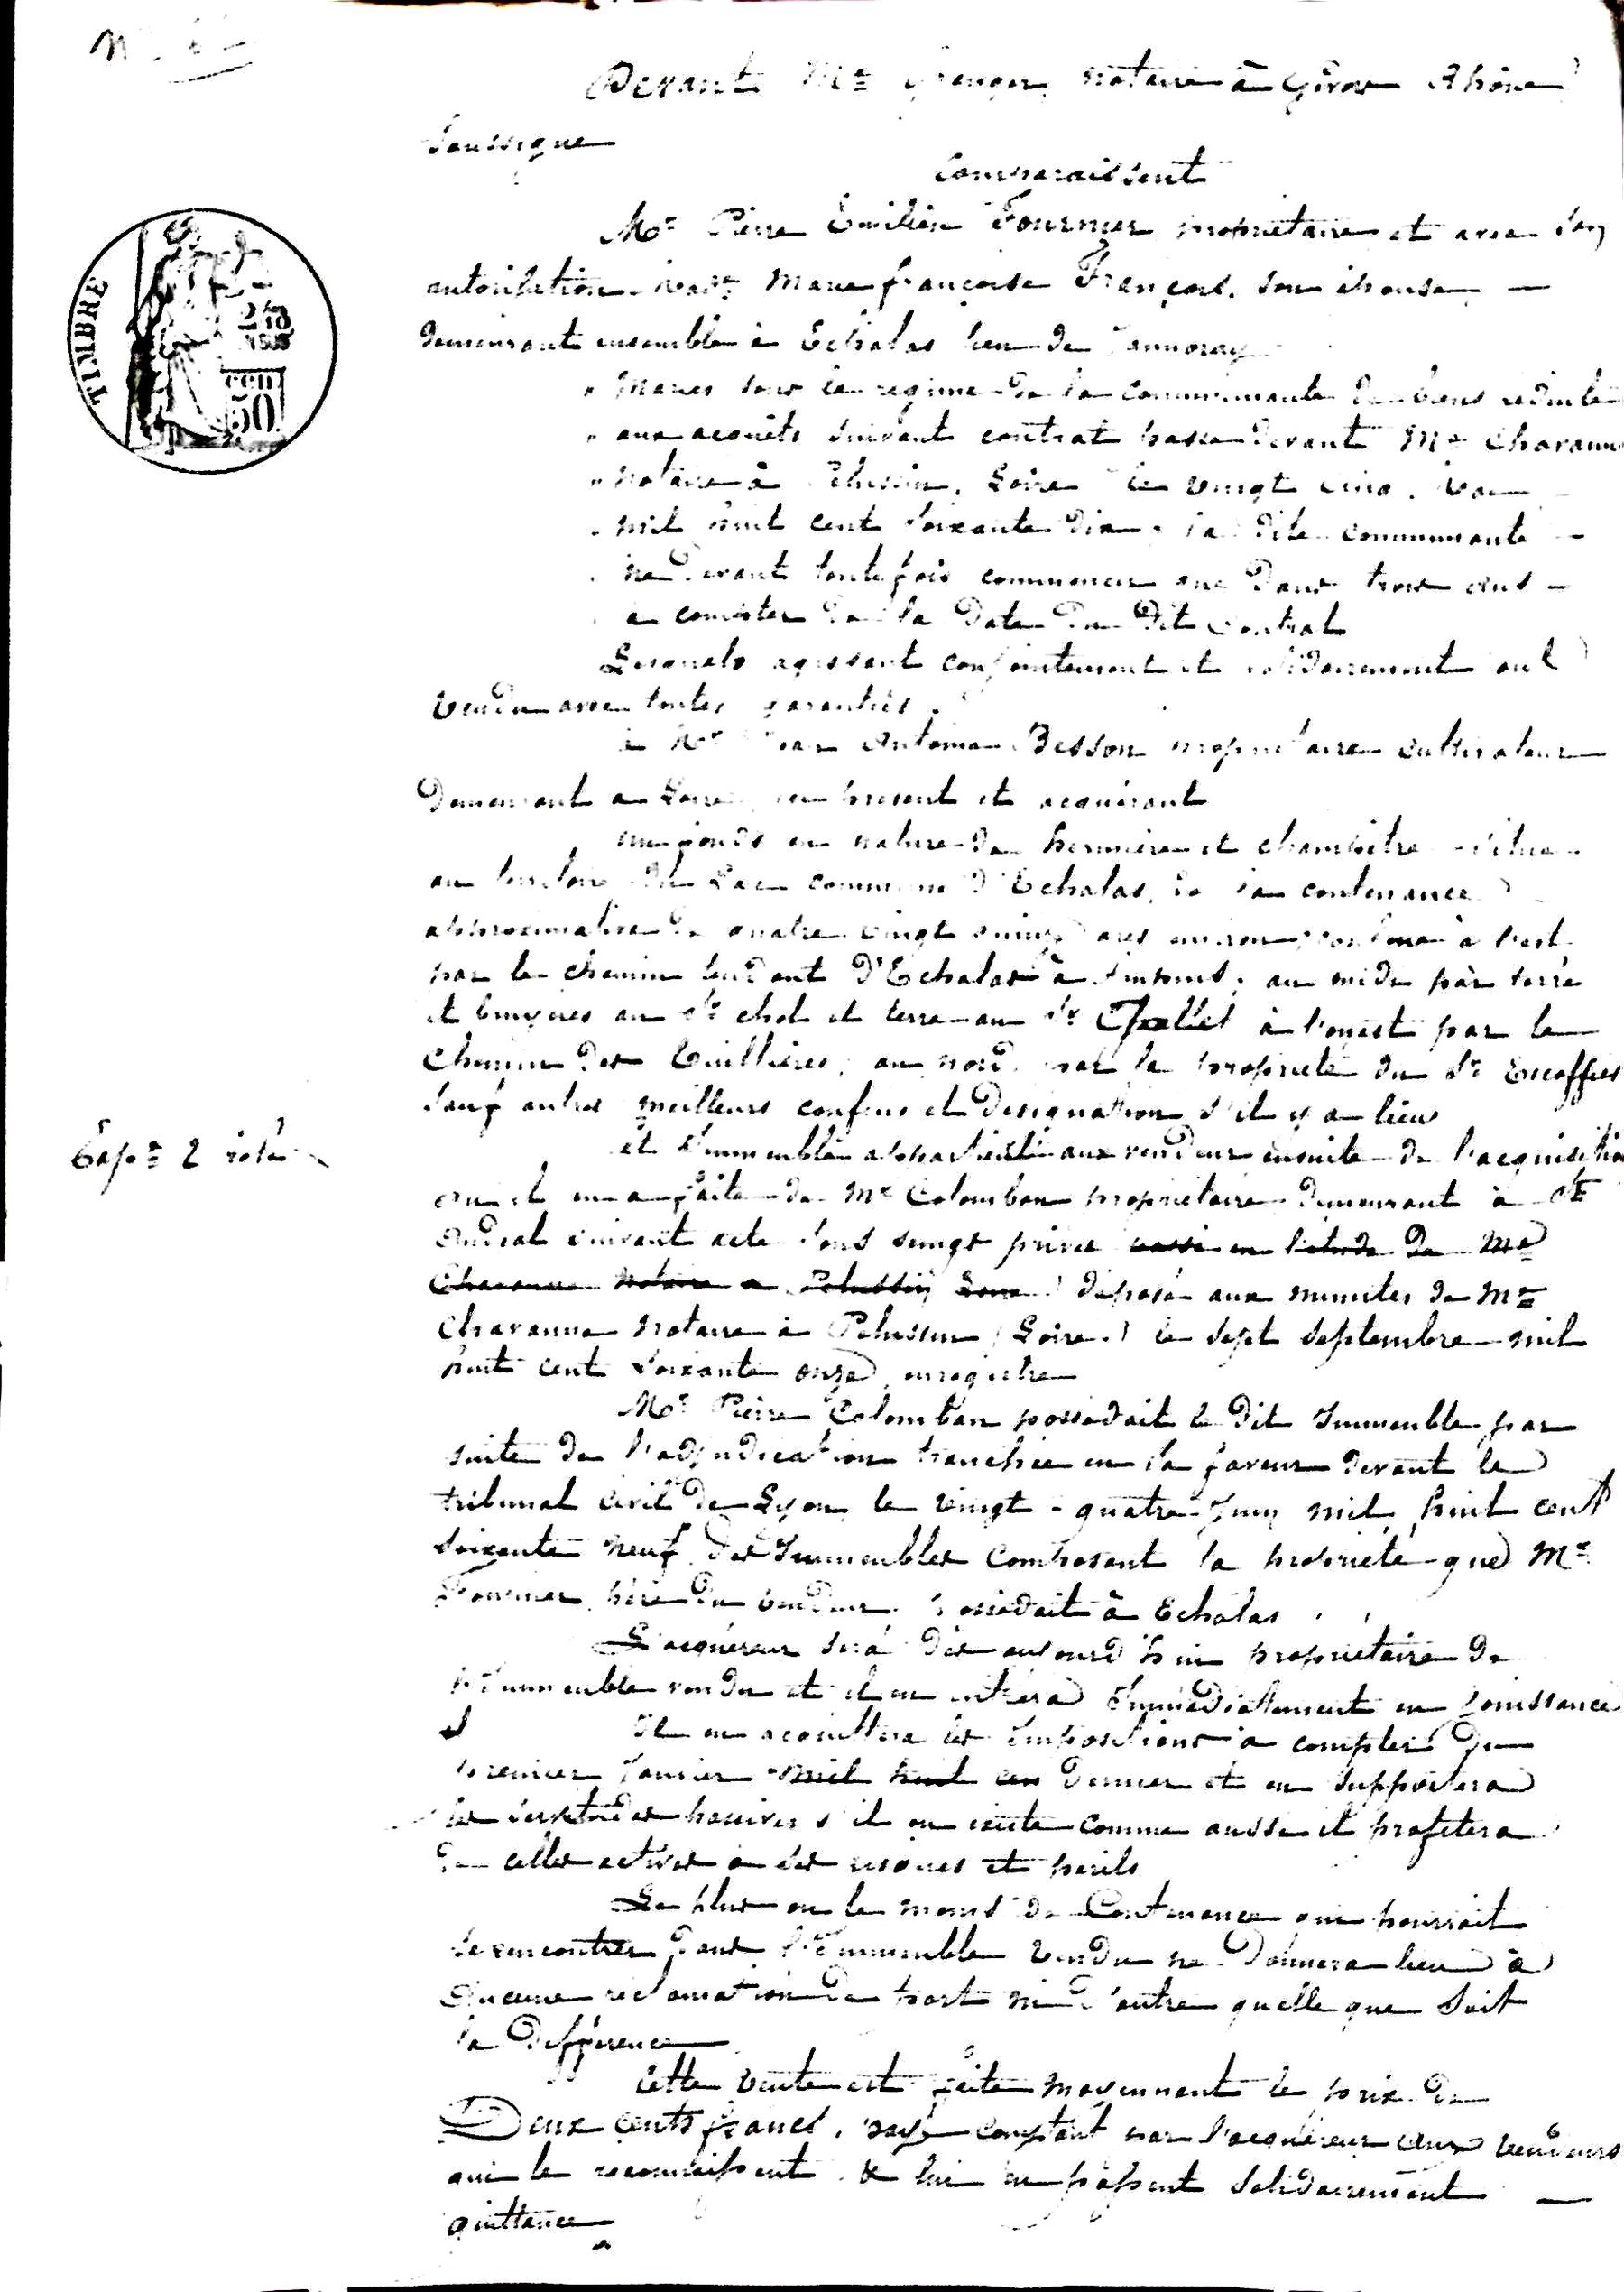 Devant Me Granger notaire à Givors Rhône
Soussigné
Comparaissent
Mr Pierre Emilien Fournier propriétaire et avec son
autorisation Made Marie françoise François, son épouse —
demeurant ensemble à Echalas lieu de
" Mariés sous le régime de la communauté de biens réduite
" aux acquêts suivant contrat passé devant Me Chavanne
" notaire à Pélussin, Loire le vingt cinq
" mil huit cent soixante dix. la dite communauté —
" ne devant toutefois commencer que dans trois ans —
à compter de la date du dit contrat
Lesquels agissant conjointement et solidairement ont
vendu avec toutes garanties.
à Mr Jean Antoine Besson propriétaire cultivateur
demeurant à Loire ici présent et acquérant
un fonds en nature de hermière et champêtre situé
au territoire du Lac commune d'Echalas, de la contenance
approximative de quatre vingt quinze ares environ, confiné à l'est
par le chemin tendant d'Echalas à, au midi par terre
et bruyères au Sr chol et terre au Sr Chollet à l'ouest par le
Chemin des Tuillières, au nord par la propriété du Sr Escoffier
sauf autres meilleurs confins et désignation s'il y a lieu
Expée 2 rôles
et l'immeuble appartient aux vendeurs ensuite de l'acquisition
qu'il en a faite de Mr Colomban propriétaire demeurant à St
Andéol suivant acte sous seings privés passé en l'étude de Me
Chavanne notaire à Pélussin Loire déposé aux minutes de Me
Chavanne notaire à Pélussin (Loire.) le sept septembre mil
huit cent soixante onze, enregistré
Mr Pierre Colomban possédait le dit Immeuble par
suite de l'adjudication tranchée en sa faveur devant le
tribunal civil de Lyon le vingt-quatre Juin mil huit cent
soixante neuf des Immeubles composant la propriété que Mr
Fournier père du vendeur possédait à Echalas
L'acquéreur sera dès aujourd'hui propriétaire de
l'Immeuble vendu et il en entrera Immédiatement en jouissance
Il en acquittera les Impositions à compter du
premier Janvier mil huit cen dernier et en supportera
les servitudes passives s'il en existe comme aussi il profitera
de celles actives à ses risques et périls
Le plus ou le moins de Contenance que pourrait
se rencontrer dans l'Immeuble vendu ne donnera lieu à
Aucune réclamation de part ni d'autre quelle que soit
la différence
Cette vente est faite moyennant le prix de
Deux cents francs, payé comptant par l'acquéreur aux vendeurs
qui le reconnaissent & lui en passent solidairement —
quittance
TIMBRE
50